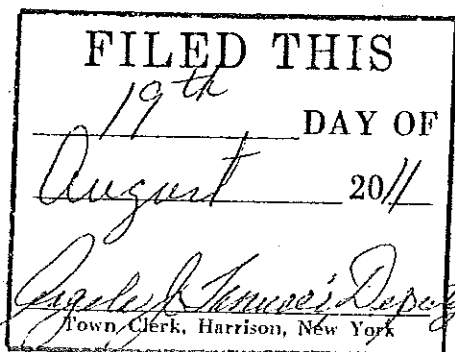 FILED THIS
19th DAY OF
August 2011
Deputy
Town Clerk, Harrison, New York